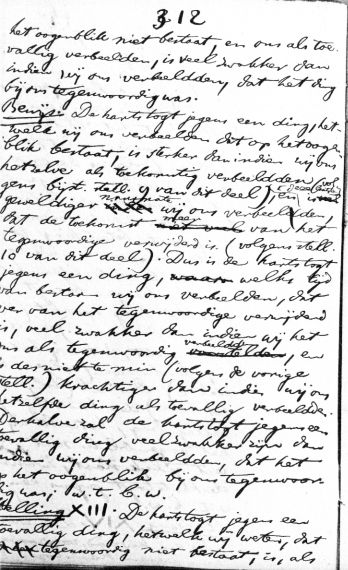 312
het oogenblik niet bestaat, en ons als toe-
vallig verbeelden, is veel zwakker dan
indien wij ons verbeeldden, dat het ding
bij ons tegenwoordig was.
Bewijs: De hartstogt jegens een ding, het-
welk wij ons verbeelden dat op het oogen-
blik bestaat, is sterker dan indien wij ons
hetzelve als toekomstig verbeeldden (vol-
gens bijst. stell. 9 van dit deel), en
geweldiger wij ons verbeelden,
dat de toekomst meer van het
tegenwoordige verwijderd is. (volgens stell.
10 van dit deel). Dus is de hartstogt
jegens een ding, welks tijd
van bestaan wij ons verbeelden, dat
ver van het tegenwoordige verwijderd
is, veel zwakker dan indien wij het
ons als tegenwoordig verbeeldden, en
is desniettemin (volgens de vorige
stell.) krachtiger dan indien wij ons
hetzelfde ding als toevallig verbeelden.
Derhalve zal de hartstogt jegens een
toevallig ding veel zwakker zijn dan
indien wij ons verbeeldden, dat het
op het oogenblik bij ons tegenwoor-
dig was; w. t. b. w.
Stelling XIII. De hartstogt jegens een
toevallig ding, hetwelk wij weten, dat
tegenwoordig niet bestaat, is, als